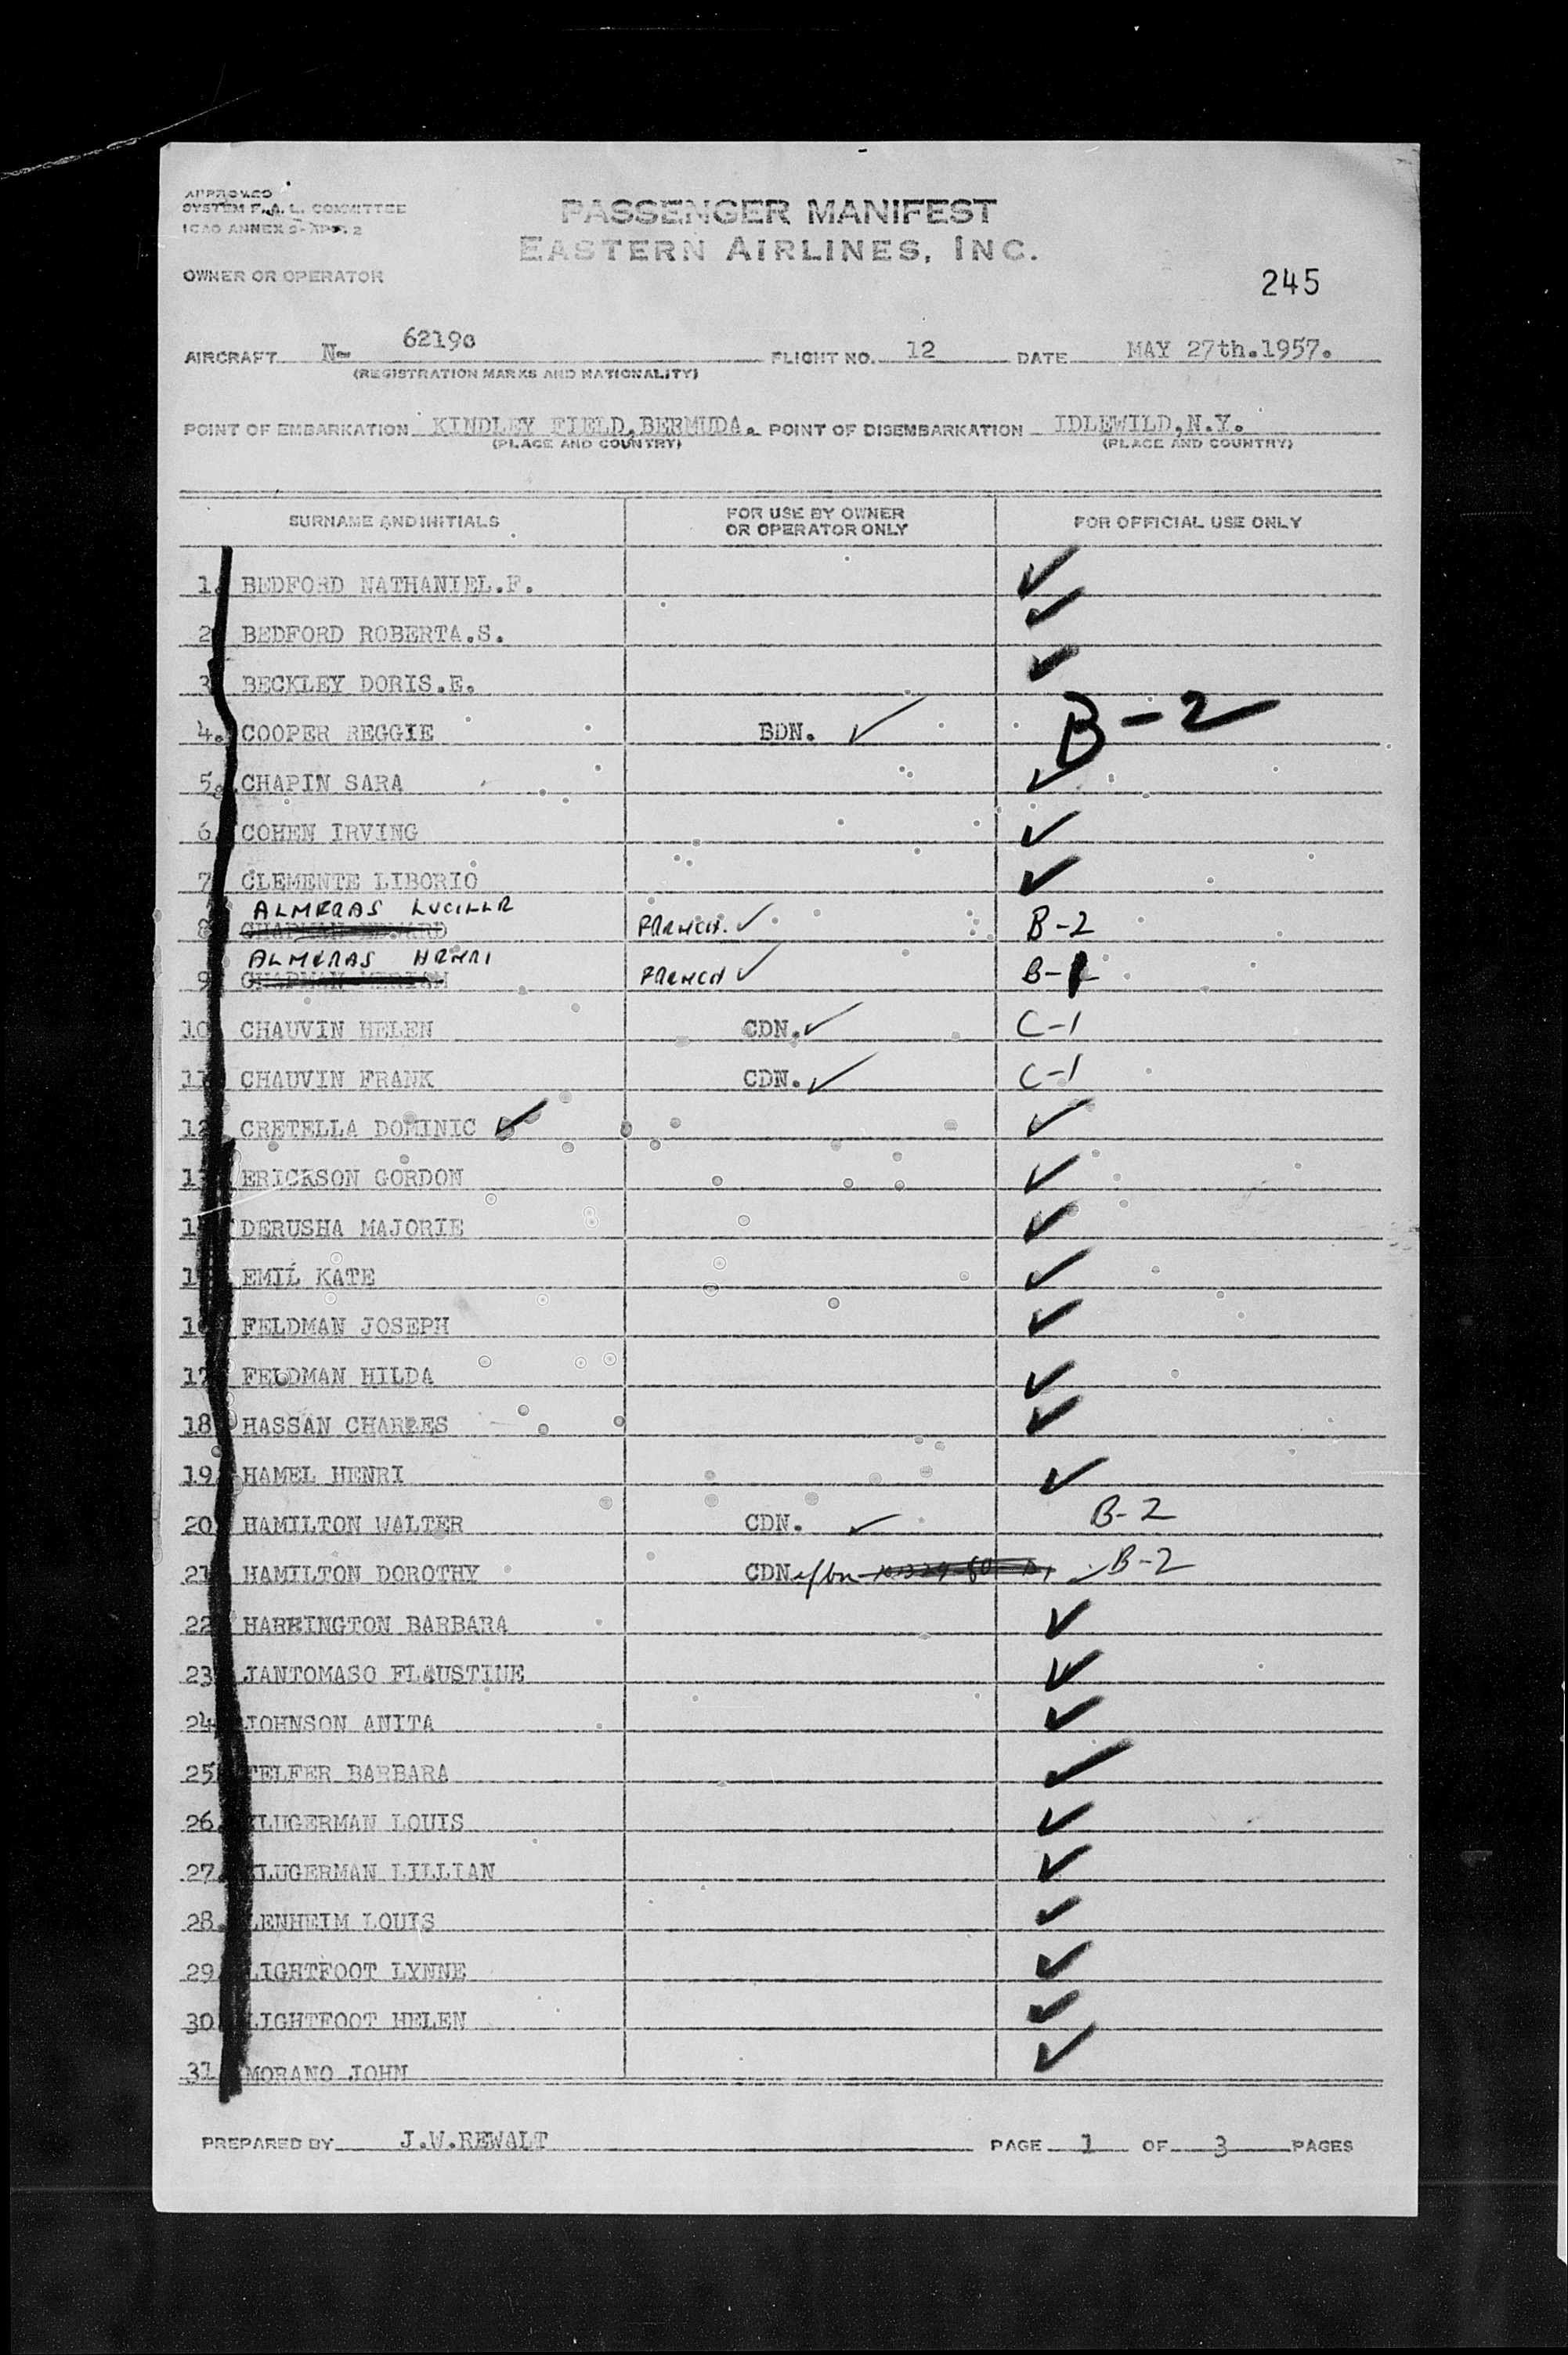 APPROVED
SYSTEM F.A.L. COMMITTEE
ICAO ANNEX 9-APP. 2
PASSENGER MANIFEST
EASTERN AIRLINES, INC.
OWNER OR OPERATOR
245
AIRCRAFT N- 6219c FLIGHT NO. 12 DATE MAY 27th.1957.
(REGISTRATION MARKS AND NATIONALITY)
POINT OF EMBARKATION KINDLEY FIELD,BERMUDA. POINT OF DISEMBARKATION IDLEWILD,N.Y.
(PLACE AND COUNTRY) (PLACE AND COUNTRY)
SURNAME AND INITIALS FOR USE BY OWNER OR OPERATOR ONLY FOR OFFICIAL USE ONLY
1. BEDFORD NATHANIEL.F. ✓
2 BEDFORD ROBERTA.S. ✓
3 BECKLEY DORIS.E. ✓
4. COOPER REGGIE BDN. ✓ B-2
5. CHAPIN SARA ✓
6 COHEN IRVING ✓
7 CLEMENTE LIBORIO ✓
ALMERAS LUCILLE
8 CHAPMAN EDWARD FRENCH. ✓ B-2
ALMERAS HENRI
9 CHAPMAN FRENCH ✓ B-2
10 CHAUVIN HELEN CDN. ✓ C-1
11 CHAUVIN FRANK CDN. ✓ C-1
12 CRETELLA DOMINIC ✓ ✓
13 ERICKSON GORDON ✓
14 DERUSHA MAJORIE ✓
15 EMIL KATE ✓
16 FELDMAN JOSEPH ✓
17 FELDMAN HILDA ✓
18 HASSAN CHARLES ✓
19 HAMEL HENRI ✓
20 HAMILTON WALTER CDN. ✓ B-2
21 HAMILTON DOROTHY CDN ✓ B-2
22 HARRINGTON BARBARA ✓
23 JANTOMASO FLAUSTINE ✓
24 JOHNSON ANITA ✓
25 TELFER BARBARA ✓
26 KLUGERMAN LOUIS ✓
27. KLUGERMAN LILLIAN ✓
28. LENHEIM LOUIS ✓
29 LIGHTFOOT LYNNE ✓
30 LIGHTFOOT HELEN ✓
31 MORANO JOHN ✓
PREPARED BY J.W.REWALT PAGE 1 OF 3 PAGES